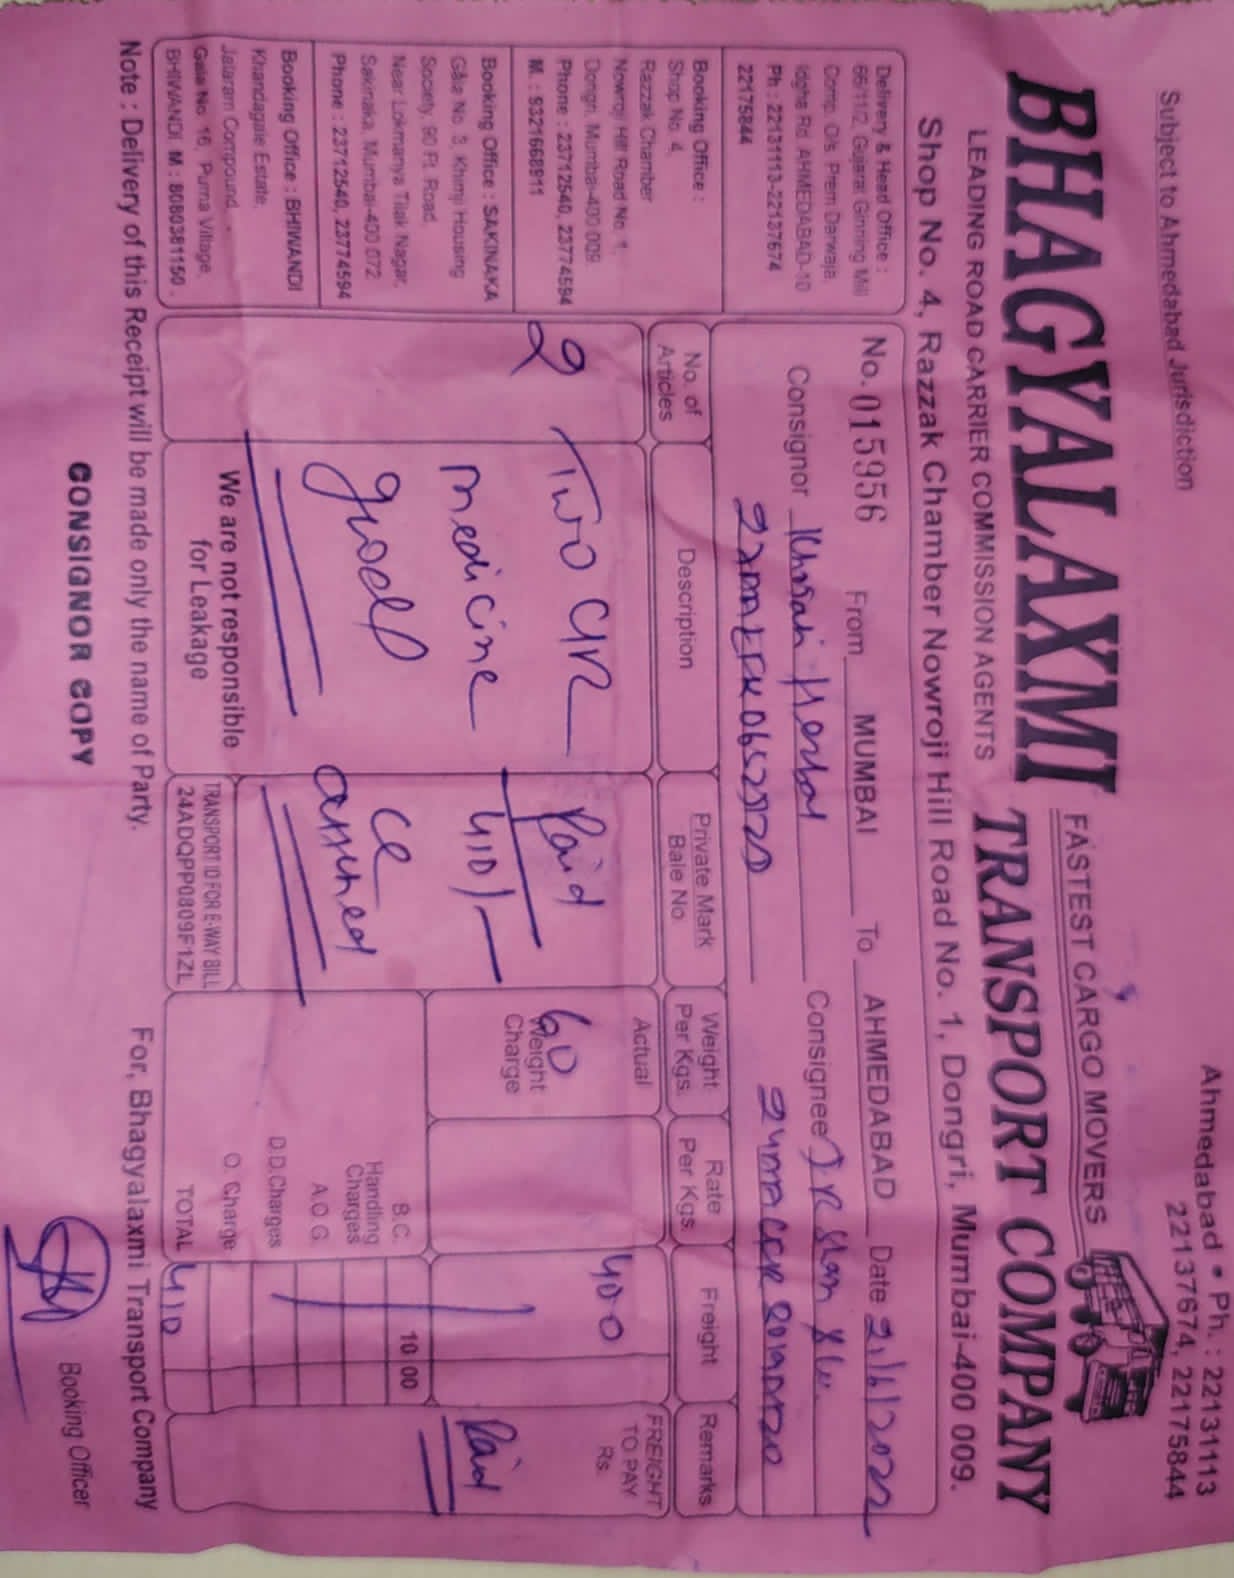 Subject to Ahmedabad Jurisdiction
Ahmedabad • Ph. : 22131113
22137674, 22175844
FASTEST CARGO MOVERS
BHAGYALAXMI TRANSPORT COMPANY
LEADING ROAD CARRIER COMMISSION AGENTS
Shop No. 4, Razzak Chamber Nowroji Hill Road No. 1, Dongri, Mumbai-400 009.
Delivery & Head Office :
66/11/2, Gujarat Ginning Mill
Comp. O/s. Prem Darwaja,
Idgha Rd. AHMEDABAD-10
Ph : 22131113-22137674
22175844
Booking Office :
Shop No. 4,
Razzak Chamber
Nowroji Hill Road No. 1,
Dongri, Mumbai-400 009.
Phone : 23712540, 23774594
M. : 9321668911
Booking Office : SAKINAKA
Gala No. 3, Khimji Housing
Society, 90 Ft. Road,
Near Lokmanya Tilak Nagar,
Sakinaka, Mumbai-400 072.
Phone : 23712540, 23774594
Booking Office : BHIWANDI
Khandagale Estate,
Jalaram Compound,
Gala No. 16, Purna Village,
BHIWANDI M : 8080381150.
No. 015956 From MUMBAI To AHMEDABAD Date 21/6/2022
Consignor Herbal Consignee
No. of Articles
Description
Private Mark Bale No.
Weight Per Kgs.
Rate Per Kgs.
Freight
Remarks
2
Two
medicine
Paid
410/-
Actual
60
Weight Charge
400
FREIGHT TO PAY Rs.
Paid
B.C. 10 00
Handling Charges
A.O.G.
D.D.Charges
O. Charge
TOTAL 410
We are not responsible for Leakage
TRANSPORT ID FOR E-WAY BILL
24ADQPP0809F1ZL
Note : Delivery of this Receipt will be made only the name of Party.
For, Bhagyalaxmi Transport Company
CONSIGNOR COPY
Booking Officer